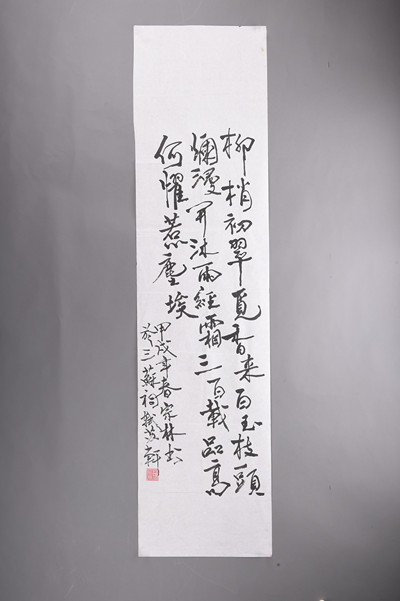 柳梢初翠觅香来白玉枝頭
爛漫開沐雨經霜三百載品高
何懼惹塵埃
甲戌年春宗林书
於三蘇祠披風軒